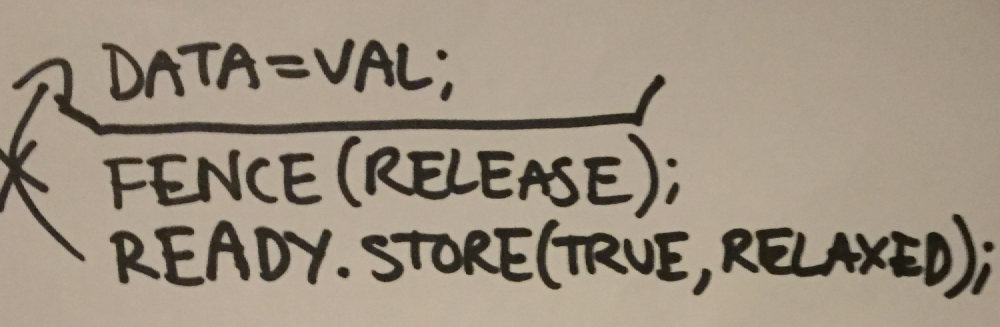 DATA=VAL;
FENCE(RELEASE);
READY.STORE(TRUE,RELAXED);